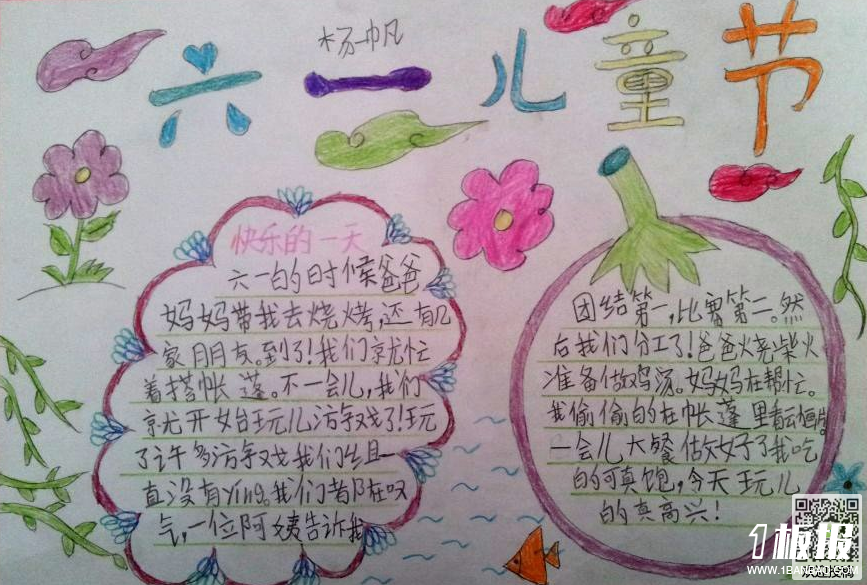 杨帆
六一儿童节
快乐的一天
六一的时候爸爸
妈妈带我去烧烤,还有几
家朋友。到了!我们就忙
着搭帐蓬。不一会儿,我们
就开始玩儿游戏了!玩
了许多游戏我们组一
直没有ying。我们都在叹
气,一位阿姨告诉我
团结第一,比赛第二。然
后我们分工了!爸爸火烧柴火
准备做鸡汤。妈妈在帮忙。
我偷偷的在帐蓬里看动画片。
一会儿大餐做好了我吃
的可真饱,今天玩儿
的真高兴!
1板报
WWW.1BANBAO.COM
欢迎投稿